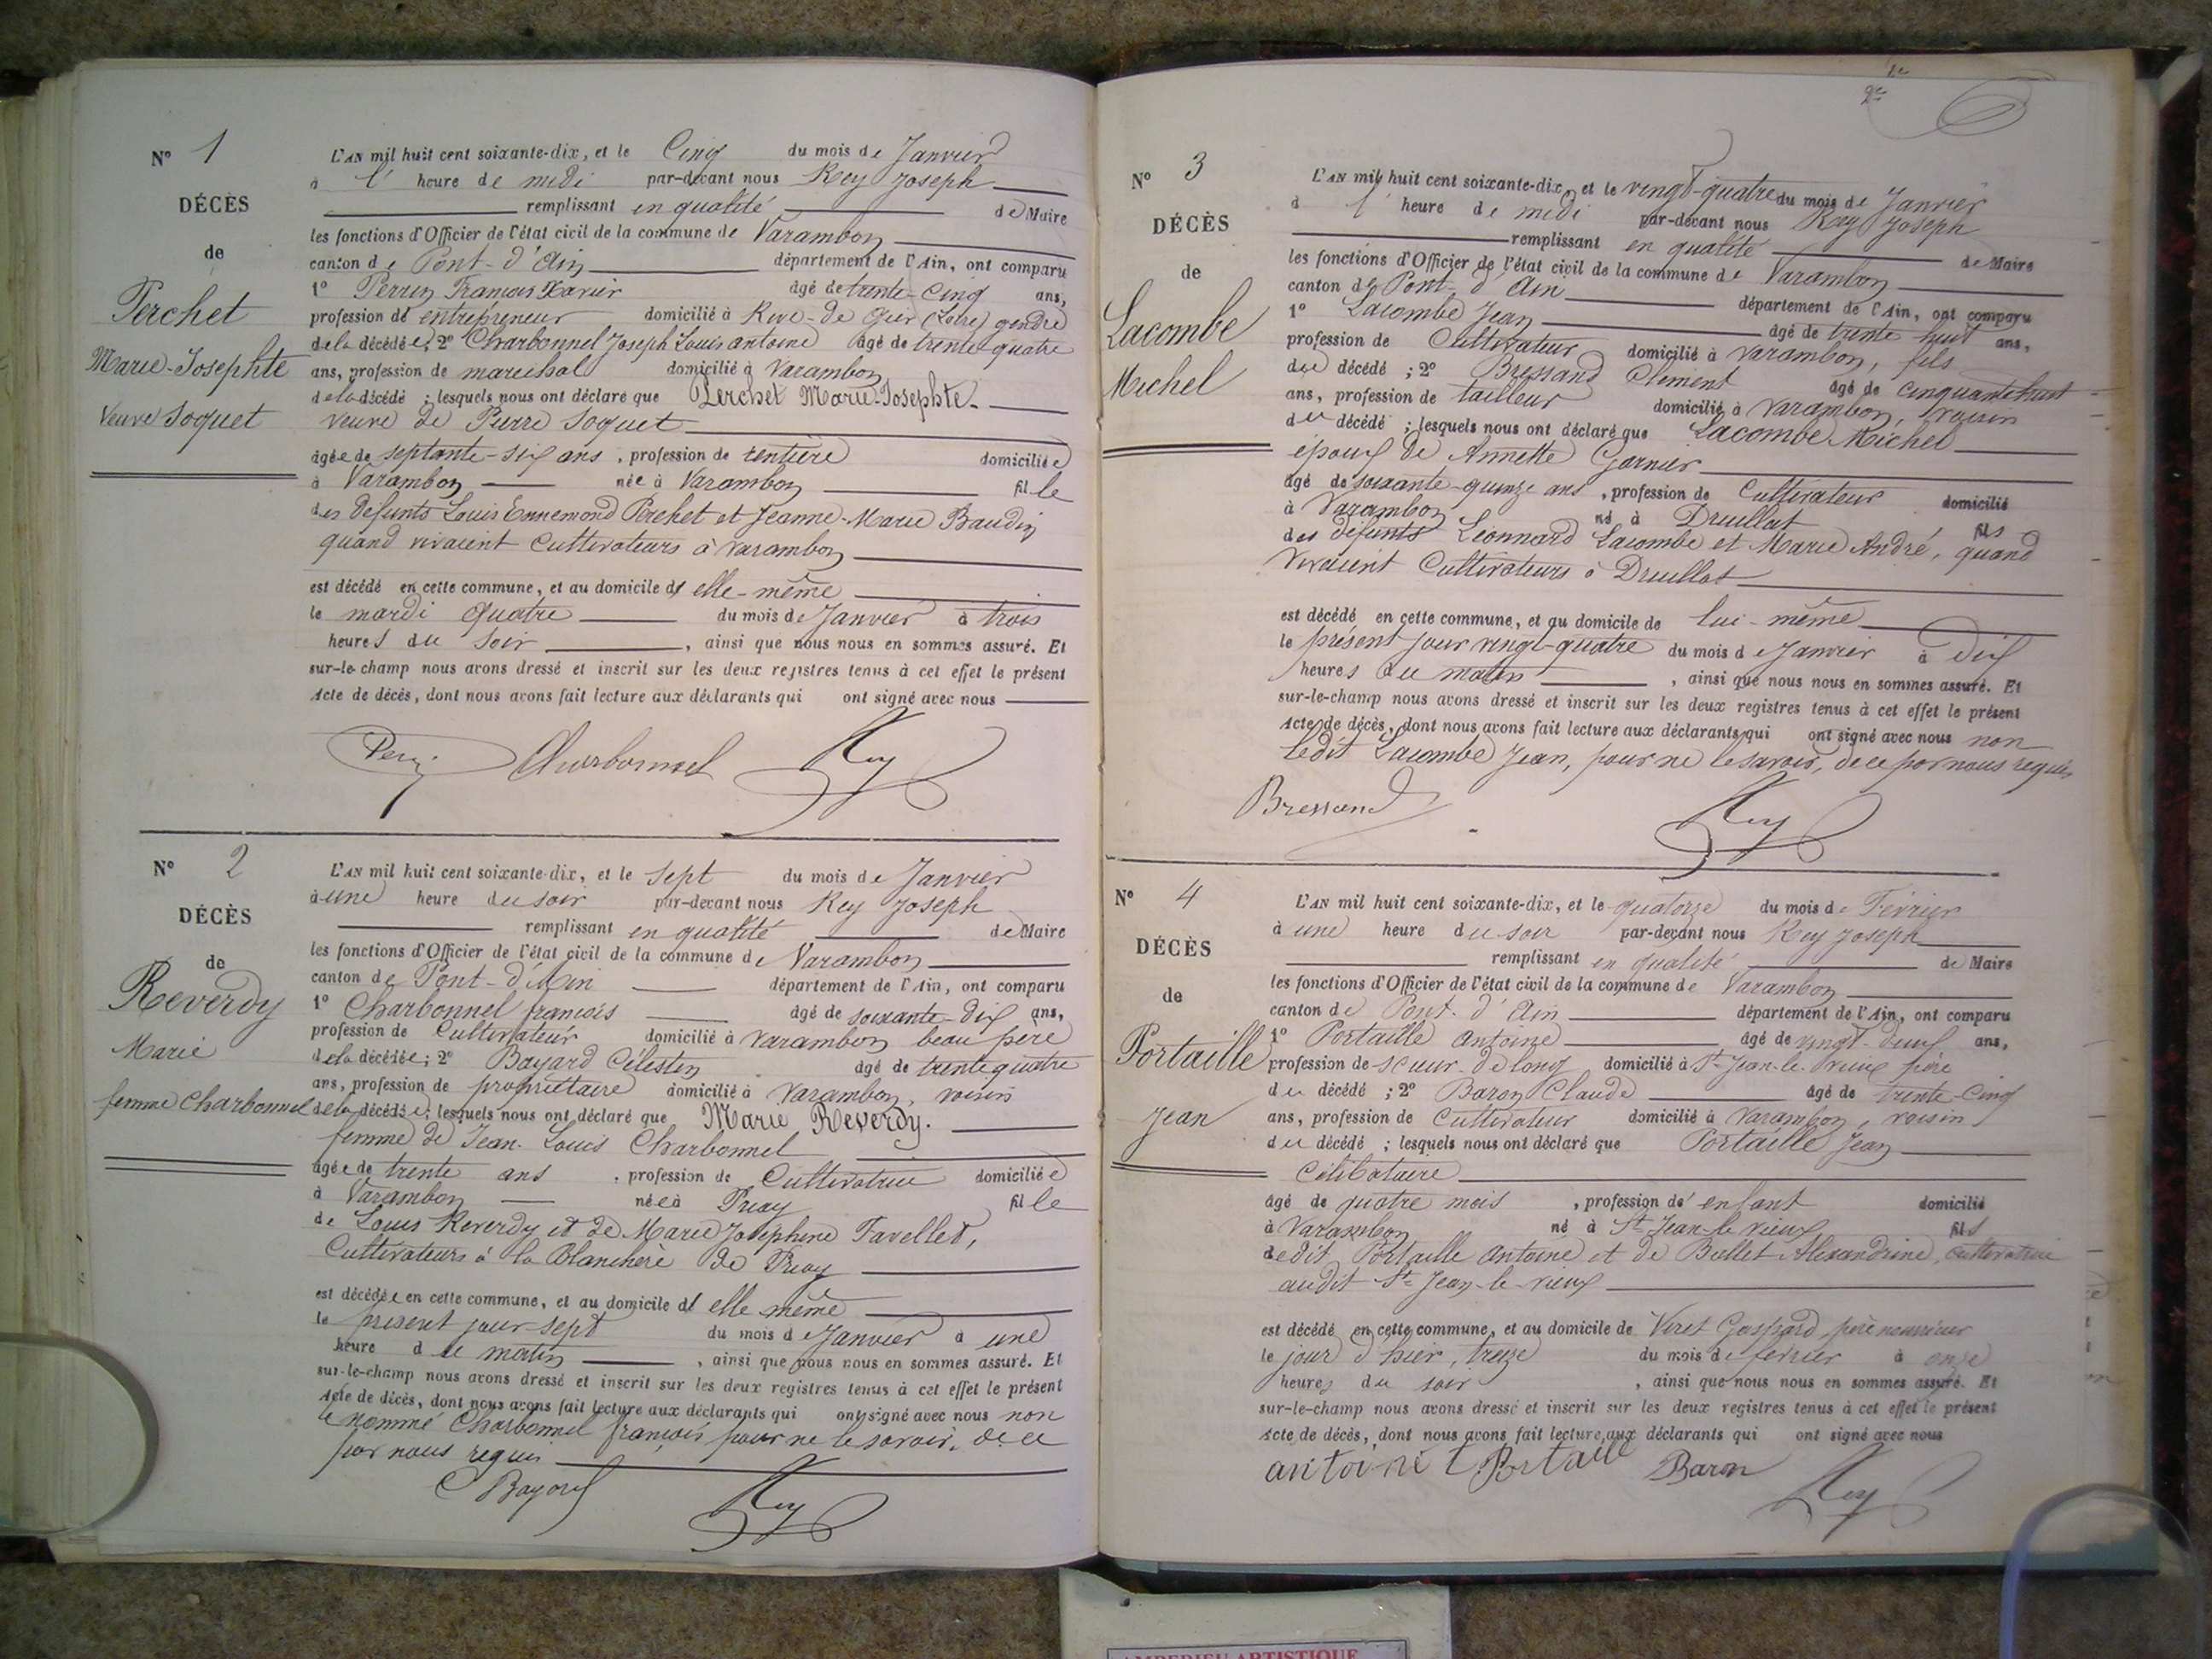 N° 1
DÉCÈS
de
Perchet
Marie-Josephte
Veuve Soquet
L'AN mil huit cent soixante-dix, et le Cinq du mois de Janvier
à l' heure de midi par-devant nous Rey Joseph
remplissant en qualité de Maire
les fonctions d'Officier de l'état civil de la commune de Varambon
canton de Pont-d'Ain département de l'Ain, ont comparu
1° Perrin François Xavier âgé de trente-cinq ans,
profession de entrepreneur domicilié à Rive-de Gier (Loire) gendre
de la décédée; 2° Charbonnel Joseph Louis antoine âgé de trente quatre
ans, profession de maréchal domicilié à Varambon
de la décédé ; lesquels nous ont déclaré que Perchet Marie-Josephte.
veuve de Pierre Soquet
âgée de septante-six ans, profession de rentière domiciliée
à Varambon née à Varambon fille
des défunts Louis Ennemond Perchet et Jeanne-Marie Baudin
quand vivaient Cultivateurs à Varambon
est décédé en cette commune, et au domicile d'elle-même
le mardi quatre du mois de Janvier à trois
heures du soir, ainsi que nous nous en sommes assuré. Et
sur-le-champ nous avons dressé et inscrit sur les deux registres tenus à cet effet le présent
Acte de décès, dont nous avons fait lecture aux déclarants qui ont signé avec nous
Charbonnel Rey
N° 2
DÉCÈS
de
Reverdy
Marie
femme Charbonnel
L'AN mil huit cent soixante-dix, et le sept du mois de Janvier
à une heure du soir par-devant nous Rey Joseph
remplissant en qualité de Maire
les fonctions d'Officier de l'état civil de la commune de Varambon
canton de Pont-d'Ain département de l'Ain, ont comparu
1° Charbonnel françois âgé de soixante-dix ans,
profession de Cultivateur domicilié à Varambon beau père
de la décédée; 2° Bayard Célestin âgé de trente quatre
ans, profession de propriétaire domicilié à Varambon, voisin
de la décédée; lesquels nous ont déclaré que Marie Reverdy.
femme de Jean-Louis Charbonnel
âgée de trente ans, profession de Cultivatrice domiciliée
à Varambon née à Priay fille
de Louis Reverdy et de Marie Josephine Favellet,
Cultivateurs à la Blanchère de Priay
est décédée en cette commune, et au domicile d'elle même
le présent jour sept du mois de Janvier à une
heure du matin, ainsi que nous nous en sommes assuré. Et
sur-le-champ nous avons dressé et inscrit sur les deux registres tenus à cet effet le présent
Acte de décès, dont nous avons fait lecture aux déclarants qui ont signé avec nous non
le nommé Charbonnel françois pour ne le savoir, de ce
par nous requis
Bayard Rey
N° 3
DÉCÈS
de
Lacombe
Michel
L'AN mil huit cent soixante-dix, et le vingt-quatre du mois de Janvier
à l' heure de midi par-devant nous Rey Joseph
remplissant en qualité de Maire
les fonctions d'Officier de l'état civil de la commune de Varambon
canton de Pont-d'Ain département de l'Ain, ont comparu
1° Lacombe Jean âgé de trente huit ans,
profession de Cultivateur domicilié à Varambon, fils
du décédé ; 2° Bressand Clément âgé de cinquante huit
ans, profession de tailleur domicilié à Varambon, voisin
du décédé ; lesquels nous ont déclaré que Lacombe Michel
époux de Annette Garnier
âgé de soixante-quinze ans, profession de Cultivateur domicilié
à Varambon né à Druillat fils
des défunts Léonnard Lacombe et Marie André, quand
vivaient Cultivateurs à Druillat
est décédé en cette commune, et au domicile de lui-même
le présent jour vingt-quatre du mois de Janvier à dix
heures du matin, ainsi que nous nous en sommes assuré. Et
sur-le-champ nous avons dressé et inscrit sur les deux registres tenus à cet effet le présent
Acte de décès, dont nous avons fait lecture aux déclarants qui ont signé avec nous non
ledit Lacombe Jean, pour ne le savoir, de ce par nous requis
Bressand Rey
N° 4
DÉCÈS
de
Portaille
Jean
L'AN mil huit cent soixante-dix, et le quatorze du mois de Février
à une heure du soir par-devant nous Rey Joseph
remplissant en qualité de Maire
les fonctions d'Officier de l'état civil de la commune de Varambon
canton de Pont-d'Ain département de l'Ain, ont comparu
1° Portaille Antoine âgé de vingt-deux ans,
profession de scieur-de long domicilié à St-Jean-le-Vieux père
du décédé ; 2° Baron Claude âgé de trente-cinq
ans, profession de Cultivateur domicilié à Varambon, voisin
du décédé ; lesquels nous ont déclaré que Portaille Jean
Célibataire
âgé de quatre mois, profession de enfant domicilié
à Varambon né à St-Jean-le vieux fils
dedit Portaille Antoine et de Bullet Alexandrine, cultivatrice
audit St-Jean-le-vieux
est décédé en cette commune, et au domicile de Viret Gaspard, père nourricier
le jour d'hier, treize du mois de février à onze
heures du soir, ainsi que nous nous en sommes assuré. Et
sur-le-champ nous avons dressé et inscrit sur les deux registres tenus à cet effet le présent
Acte de décès, dont nous avons fait lecture aux déclarants qui ont signé avec nous
antoine Portaill Baron Rey
AMBERIEU ARTISTIQUE